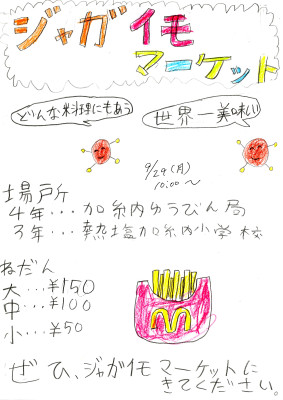 ジャガイモ
マーケット
どんな料理にもあう
世界一美味しい
9/29(月)
10:00〜
場所
4年・・・加納内ゆうびん局
3年・・・熱塩加納内小学校
ねだん
大・・・¥150
中・・・¥100
小・・・¥50
ぜひ、ジャガイモマーケットに
きてください。